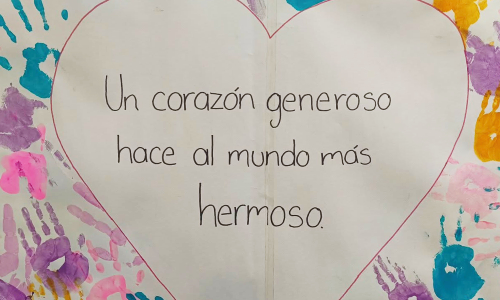 Un corazón generoso
hace al mundo más
hermoso.